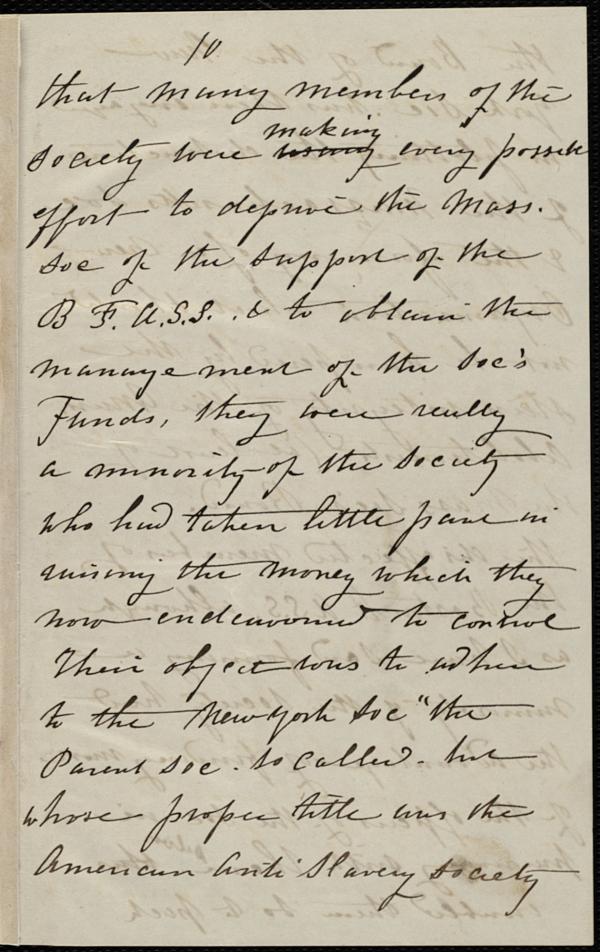 10
that many members of the
making
society were using every possible
effort to deprive the Mass.
soc of the support of the
B F. A.S.S. & to obtain the
manage ment of the Soc's
Funds, they were really
a minority of the Society
who had taken little part in
raising the money which they
now endeavoured to control
Their object was to adhere
to the New York Soc "the
Parent soc. so called. but
whose proper title was the
American Anti Slavery Society